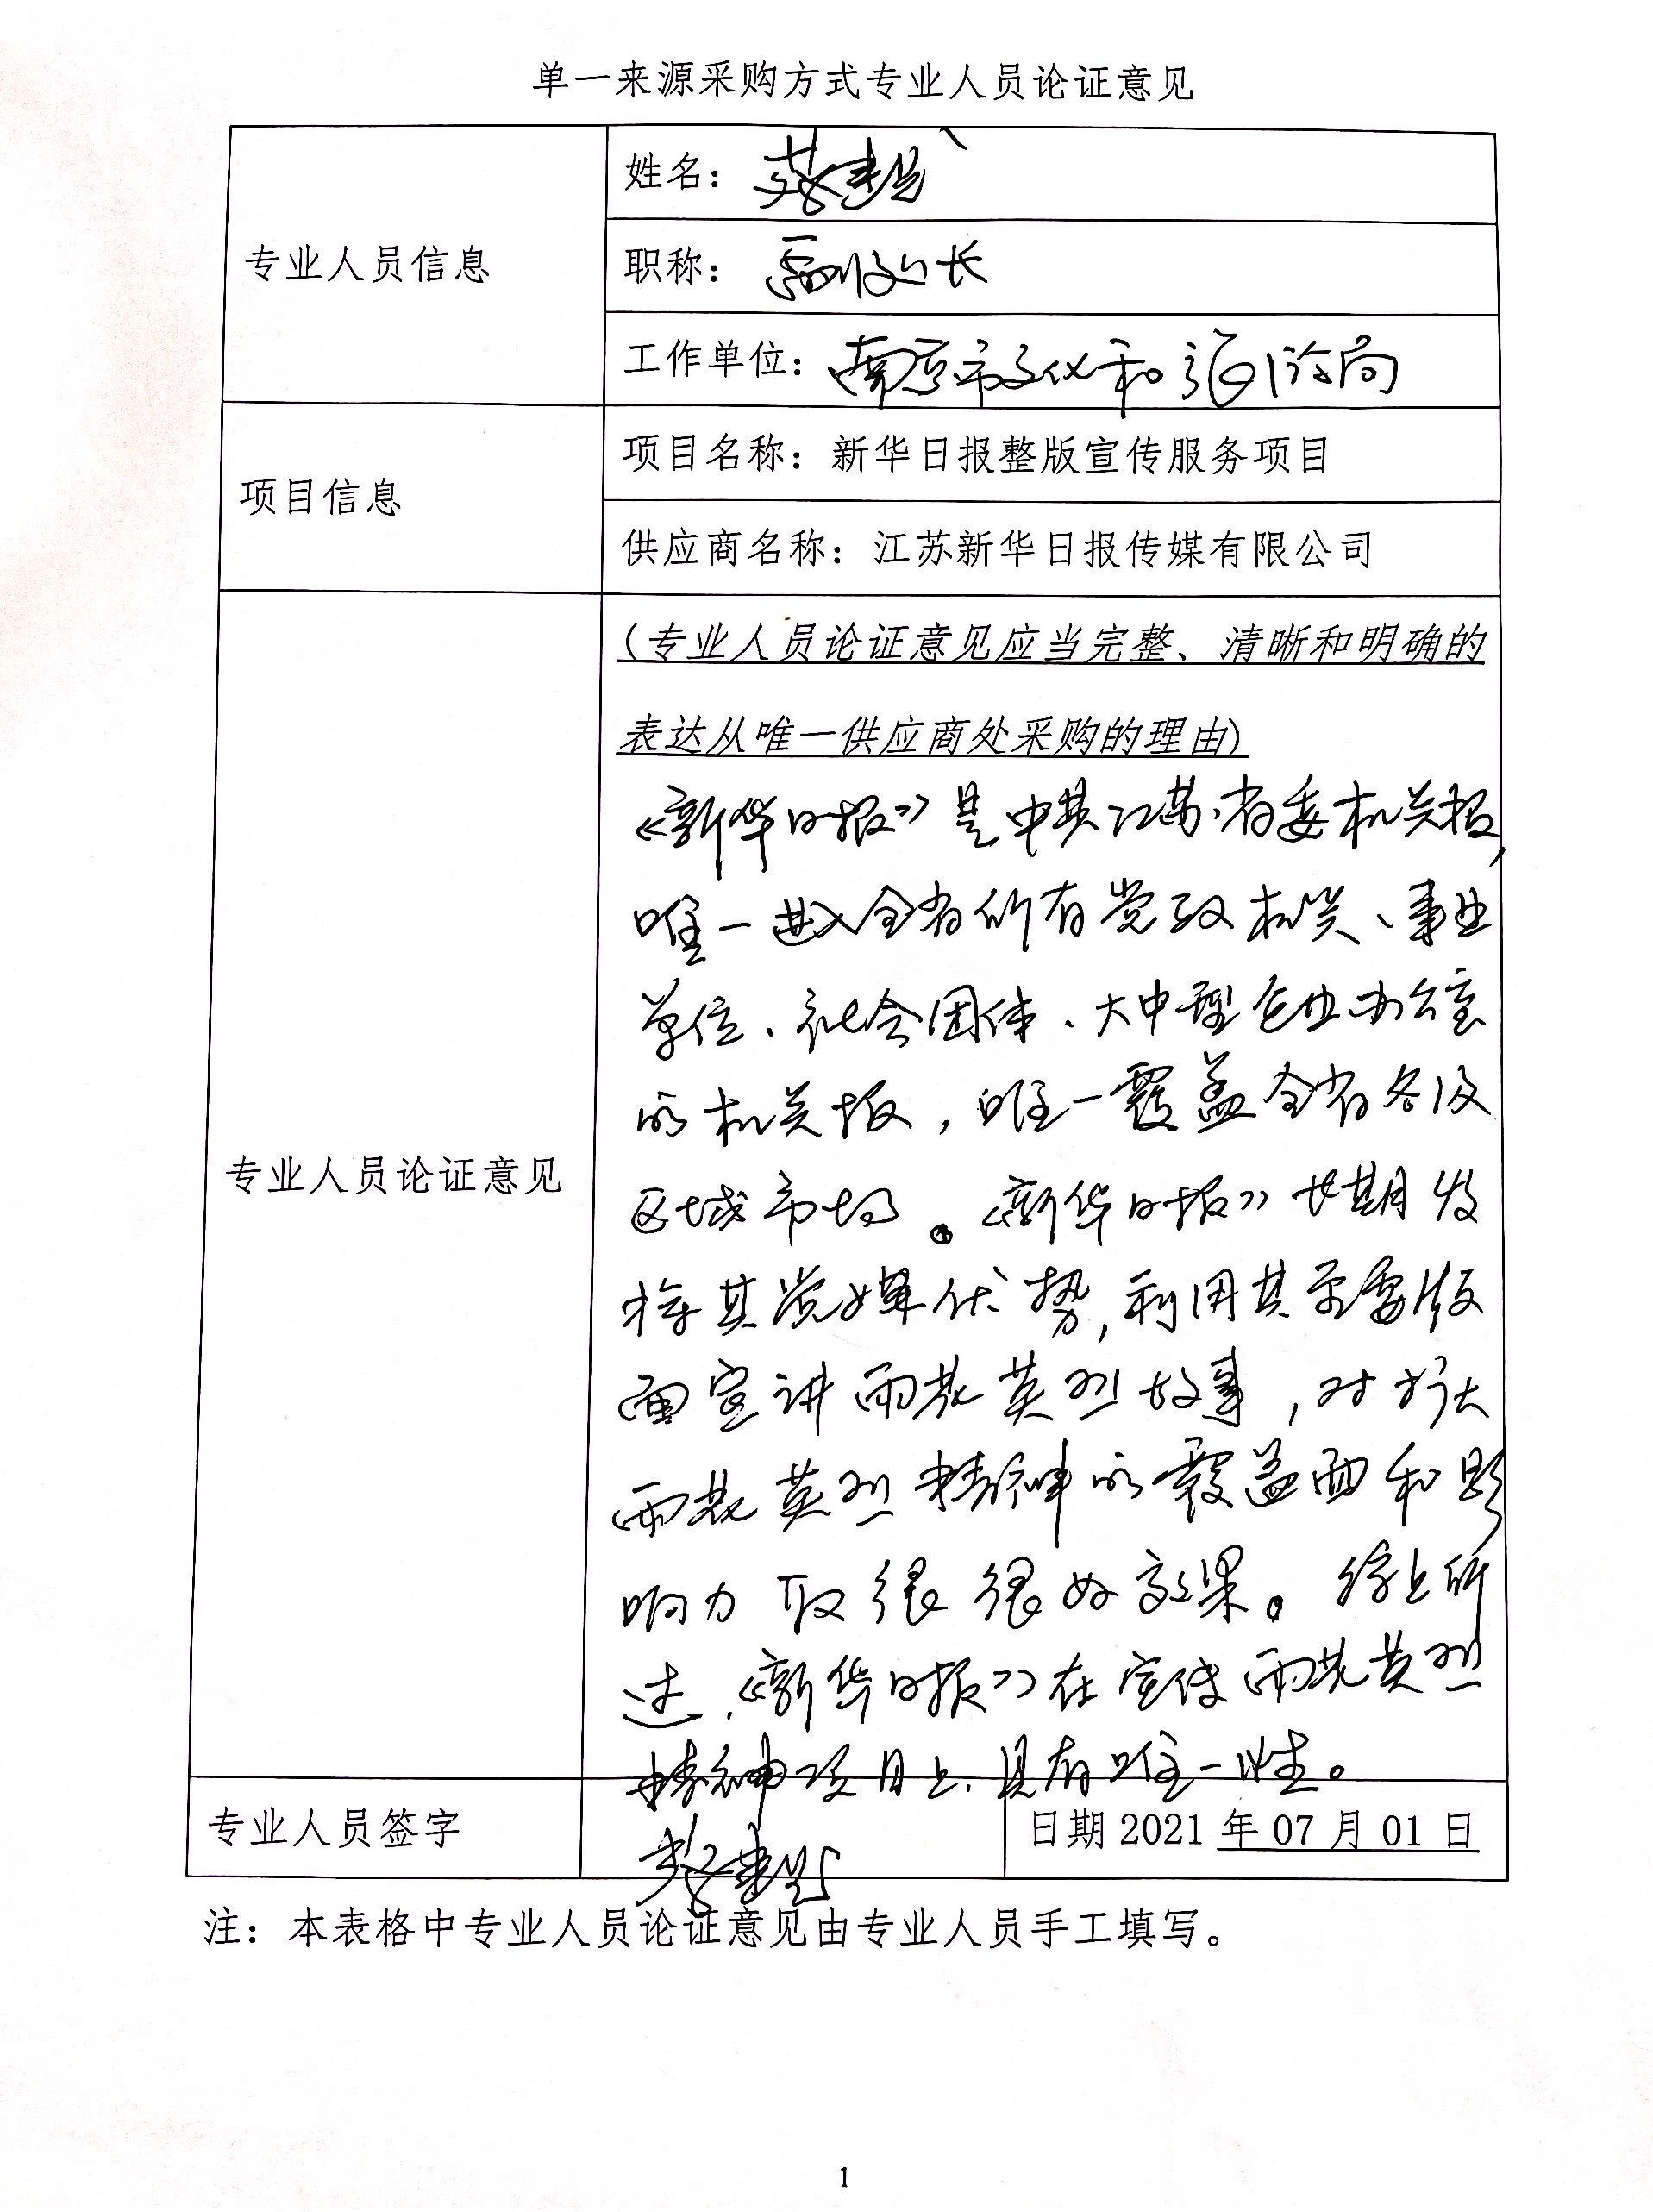 单一来源采购方式专业人员论证意见
专业人员信息
姓名：
职称：副处长
工作单位：南京市文化和旅游局
项目信息
项目名称：新华日报整版宣传服务项目
供应商名称：江苏新华日报传媒有限公司
专业人员论证意见
(专业人员论证意见应当完整、清晰和明确的
表达从唯一供应商处采购的理由)
《新华日报》是中共江苏省委机关报，
唯一进入全省所有党政机关、事业
单位、社会团体、大中型企业办公室
的机关报，唯一覆盖全省各级
区域市场。《新华日报》长期发
挥其党媒优势，利用其重要版
面宣讲雨花英烈故事，对扩大
雨花英烈精神的覆盖面和影
响力取得很好效果。综上所
述，《新华日报》在宣传雨花英烈
精神项目上，具有唯一性。
专业人员签字
日期 2021 年 07 月 01 日
注：本表格中专业人员论证意见由专业人员手工填写。
1